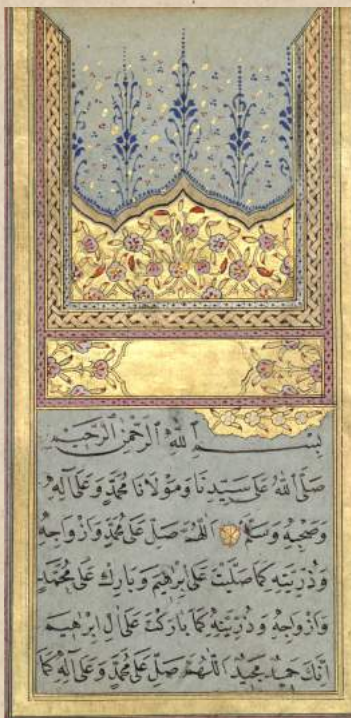 بِسْمِ اللهِ الرَّحْمٰنِ الرَّحِيمِ
صَلَّى اللهُ عَلٰى سَيِّدِنَا وَمَوْلَانَا مُحَمَّدٍ وَعَلٰى آلِهِ
وَصَحْبِهِ وَسَلَّمَ اَللّٰهُمَّ صَلِّ عَلٰى مُحَمَّدٍ وَاَزْوَاجِهِ
وَذُرِّيَّتِهِ كَمَا صَلَّيْتَ عَلٰى اِبْرٰهِيمَ وَبَارِكْ عَلٰى مُحَمَّدٍ
وَاَزْوَاجِهِ وَذُرِّيَّتِهِ كَمَا بَارَكْتَ عَلٰى اٰلِ اِبْرٰهِيمَ
اِنَّكَ حَمِيدٌ مَجِيدٌ اَللّٰهُمَّ صَلِّ عَلٰى مُحَمَّدٍ وَعَلٰى آلِهِ كَمَا